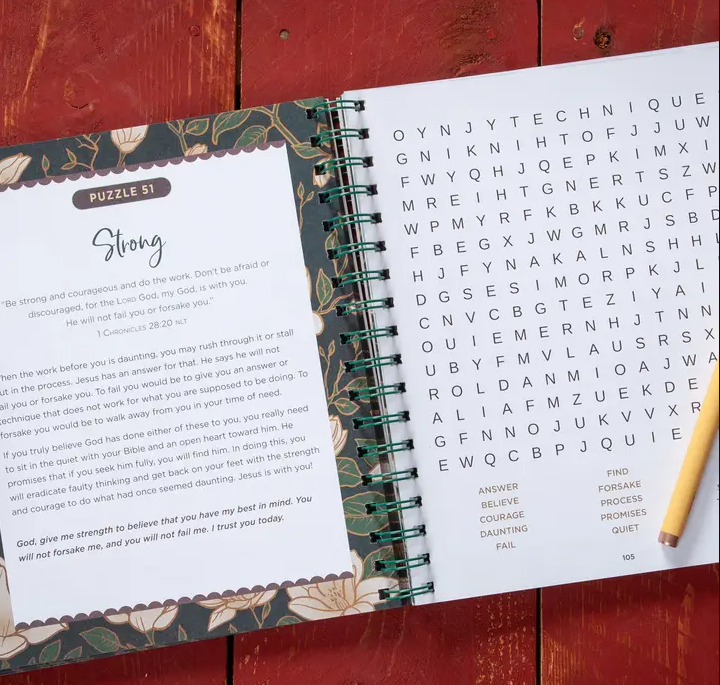 PUZZLE 51
Strong
"Be strong and courageous and do the work. Don't be afraid or
discouraged, for the LORD God, my God, is with you.
He will not fail you or forsake you."
1 CHRONICLES 28:20 NLT
hen the work before you is daunting, you may rush through it or stall
ut in the process. Jesus has an answer for that. He says he will not
ail you or forsake you. To fail you would be to give you an answer or
technique that does not work for what you are supposed to be doing. To
forsake you would be to walk away from you in your time of need.
If you truly believe God has done either of these to you, you really need
to sit in the quiet with your Bible and an open heart toward him. He
promises that if you seek him fully, you will find him. In doing this, you
will eradicate faulty thinking and get back on your feet with the strength
and courage to do what had once seemed daunting. Jesus is with you!
God, give me strength to believe that you have my best in mind. You
will not forsake me, and you will not fail me. I trust you today.
O Y N J Y T E C H N I Q U E
G N I K N I H T O F J J U W
F W Y Q H J Q E P K I M X I
M R E I H T G N E R T S Z W
W P M Y R F K B K K U C F P
F B E G X J W G M R J S B D
H J F Y N A K A L N S H H L
D G S E S I M O R P K J L
C N V C B G T E Z I Y A I
O U I E M E R N H J T N N
U B Y F M V L A U S R S X
R O L D A N M I O A J W A
A L I A F M Z U E K D E
G F N N O J U K V V X R
E W Q C B P J Q U I E
ANSWER
BELIEVE
COURAGE
DAUNTING
FAIL
FIND
FORSAKE
PROCESS
PROMISES
QUIET
105